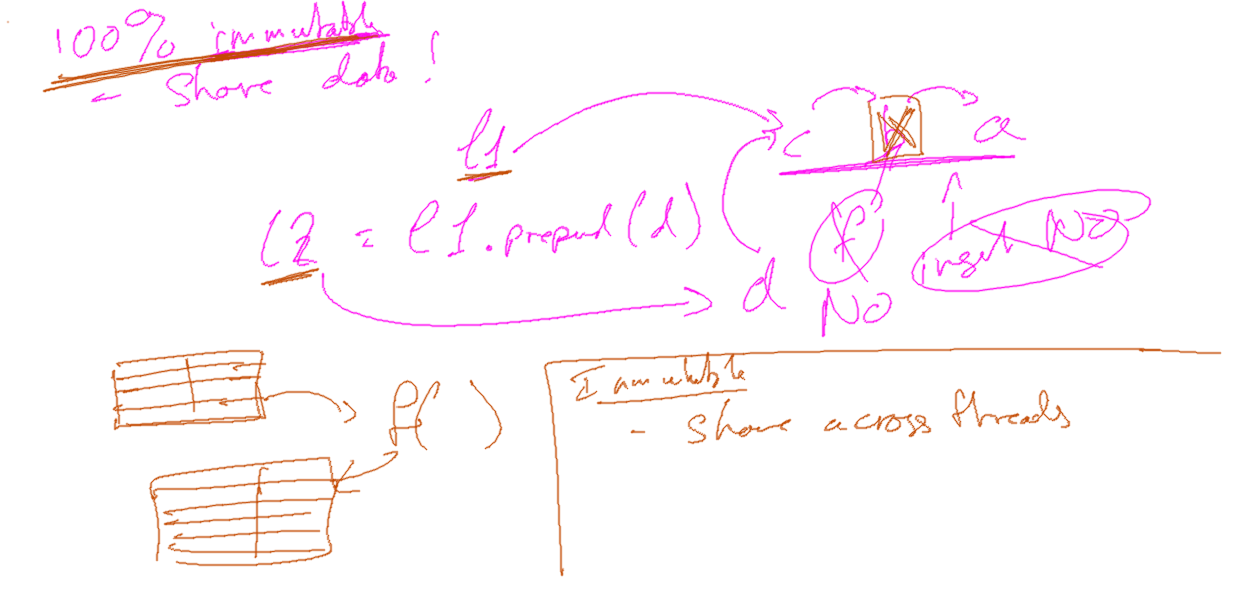 100% immutable
- Share data!
l1
c b a
l2 = l1.prepend(d)
d
f
NO
insert NO
f( )
Immutable
- Share across threads